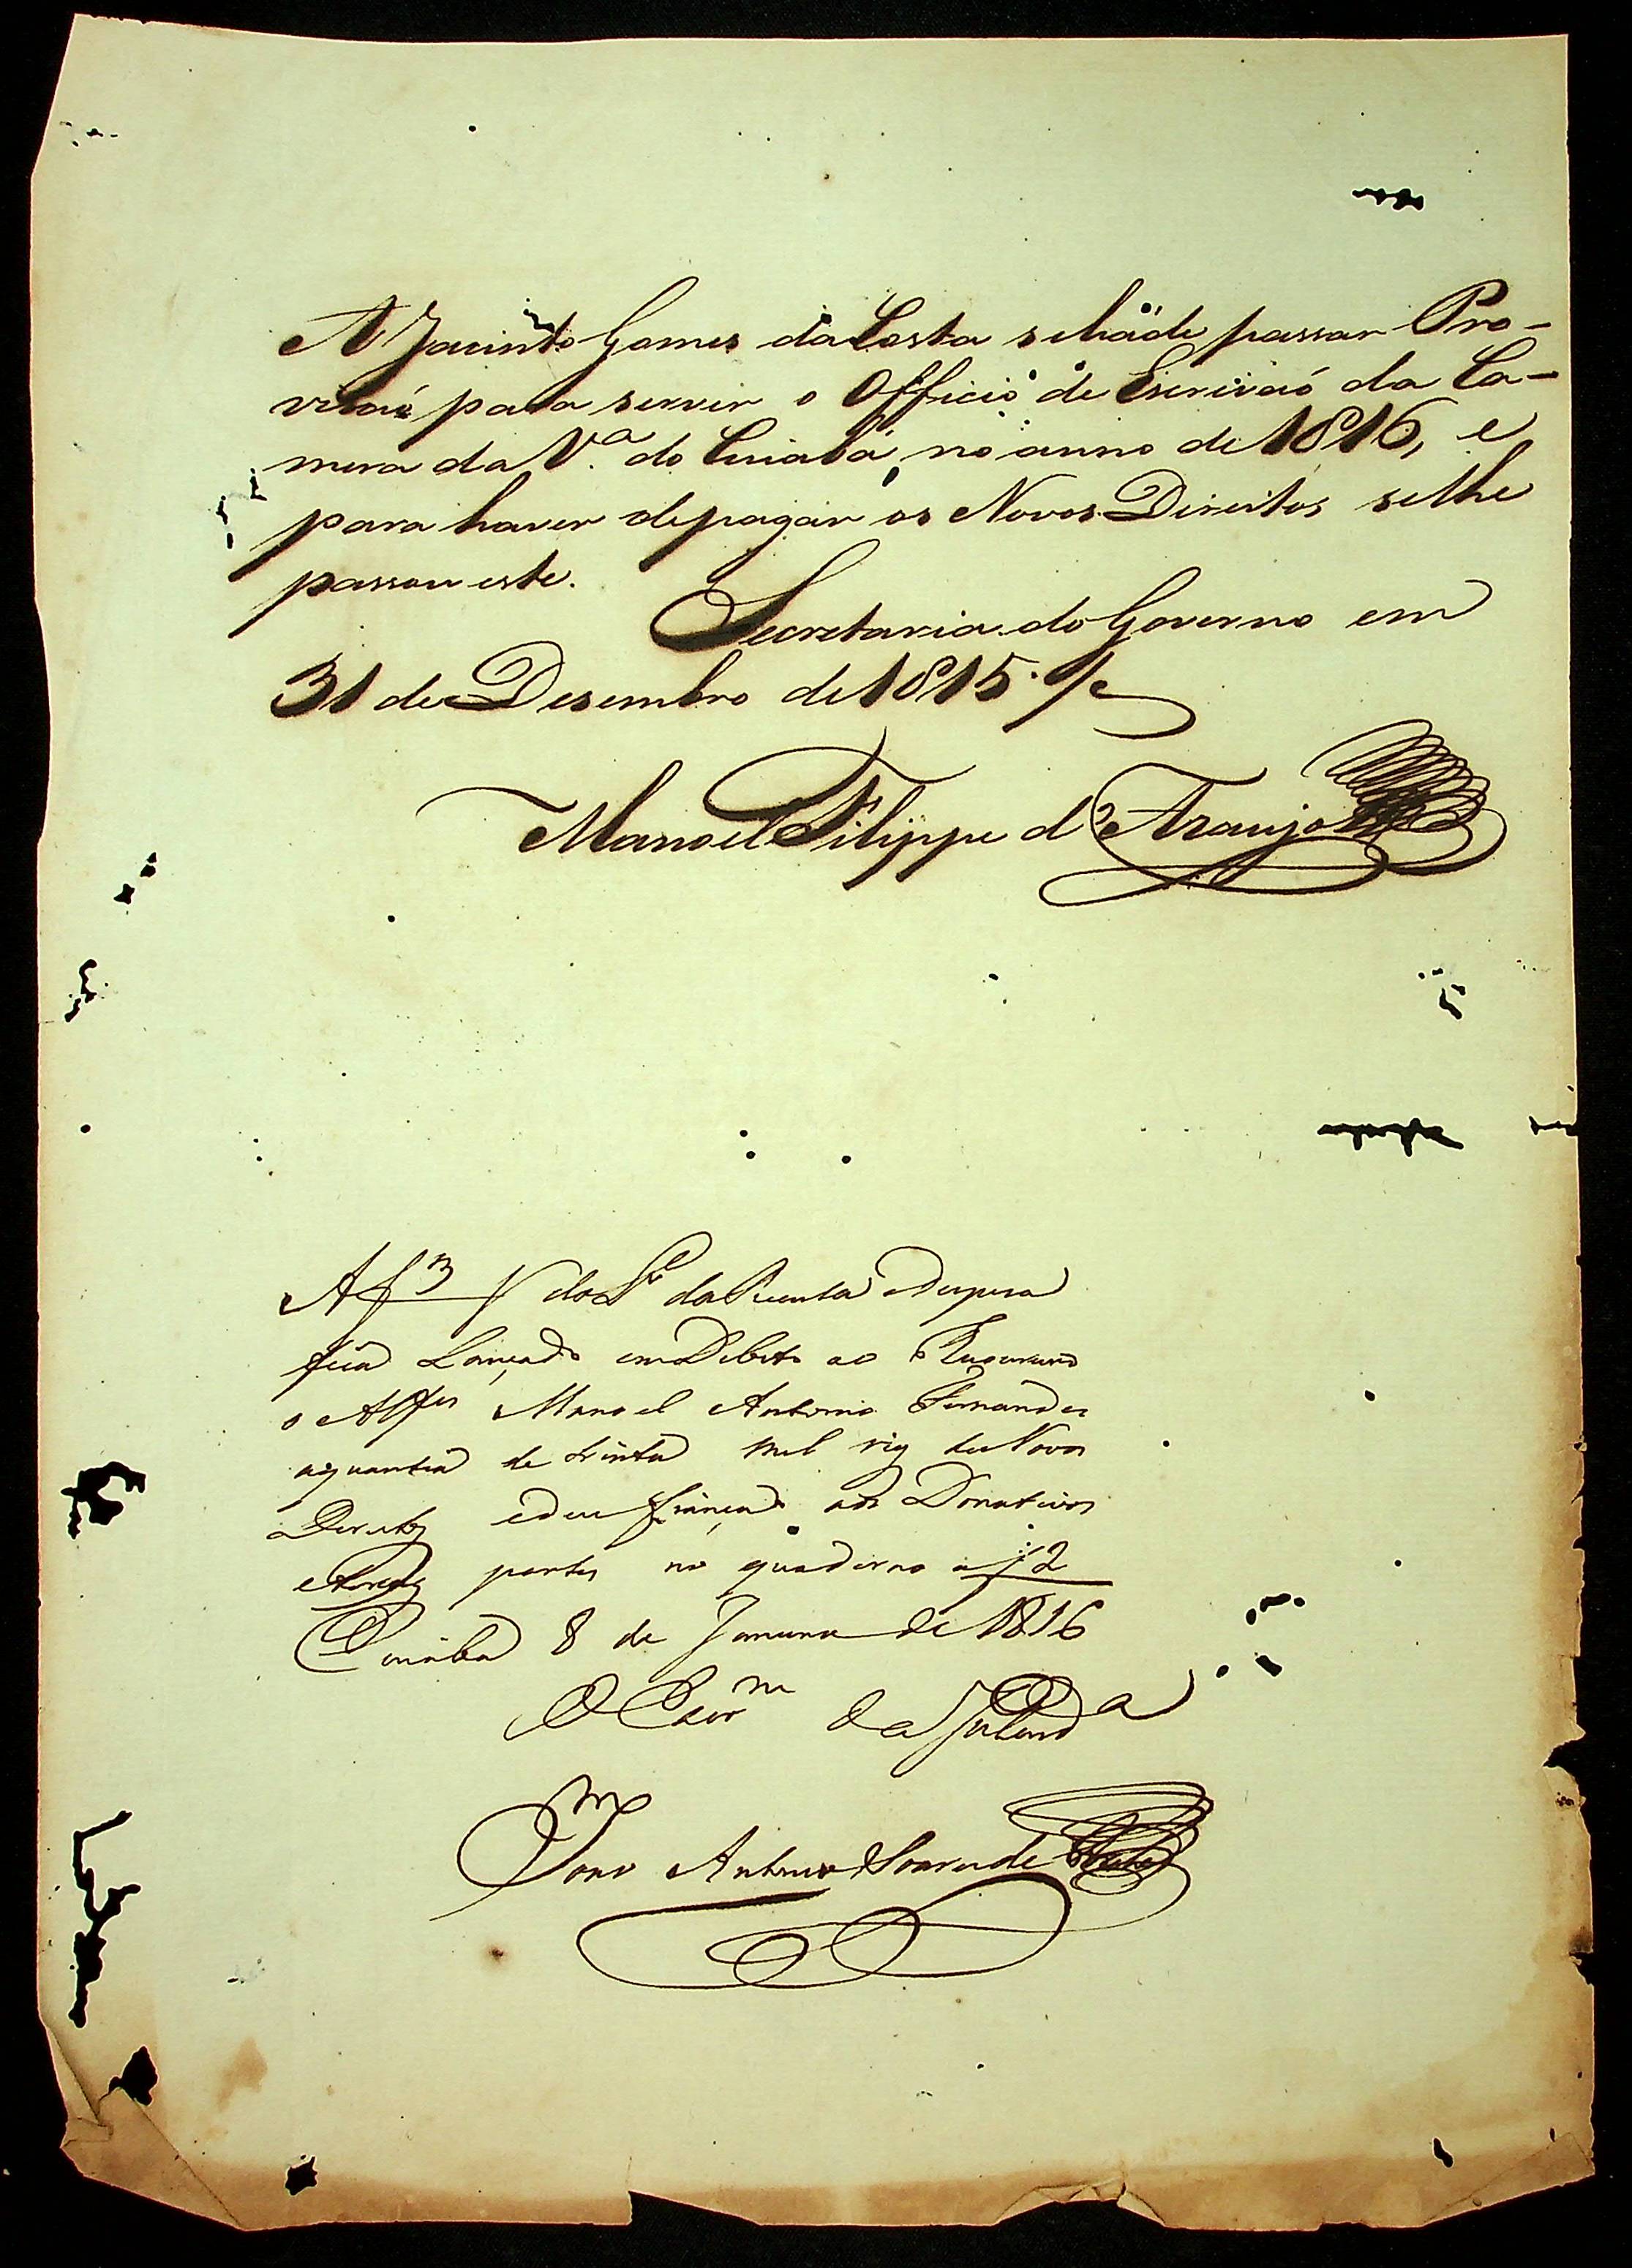 A Jacinto Gomes da Costa se hade passar Pro-
vizaó para servir o Officio de Escrivaó da Ca-
mera da V.ª do Cuiabá no anno de 1816, e
para haver de pagar os Novos Direitos se lhe
passou este.
Secretaria do Governo em
31 de Desembro de 1815.
Manoel Filippe d'Araujo
Af 3 V do L.º da Receita e Despesa
fica Lançado em Debito ao
o Alf.es Manoel Antonio Fernandes
a quantia de trinta mil reis de Novos
Direitos e deu fiança aos Donativos
e terças partes no quaderno a f 2
Cuiabá 8 de Janeiro de 1816
O Escr.m da
João Antonio Soares de